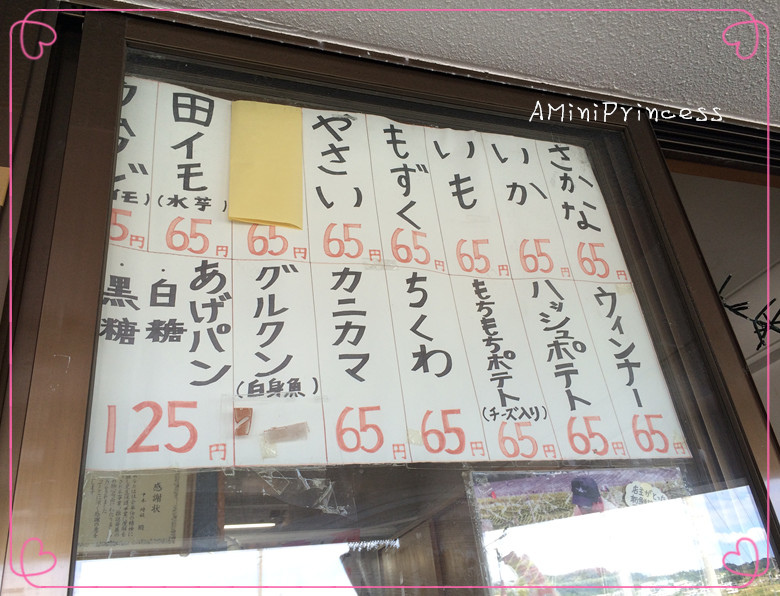 AMiniPrincess
さかな
65円
いか
65円
いも
65円
もずく
65円
やさい
65円
65円
田イモ
(水芋)
65円
イモ)
5円
ウィンナー
65円
ハッシュポテト
65円
もちもちポテト
(チーズ入り)
65円
ちくわ
65円
カニカマ
65円
グルクン
(白身魚)
円
あげパン
・白糖
・黒糖
125円
感謝状